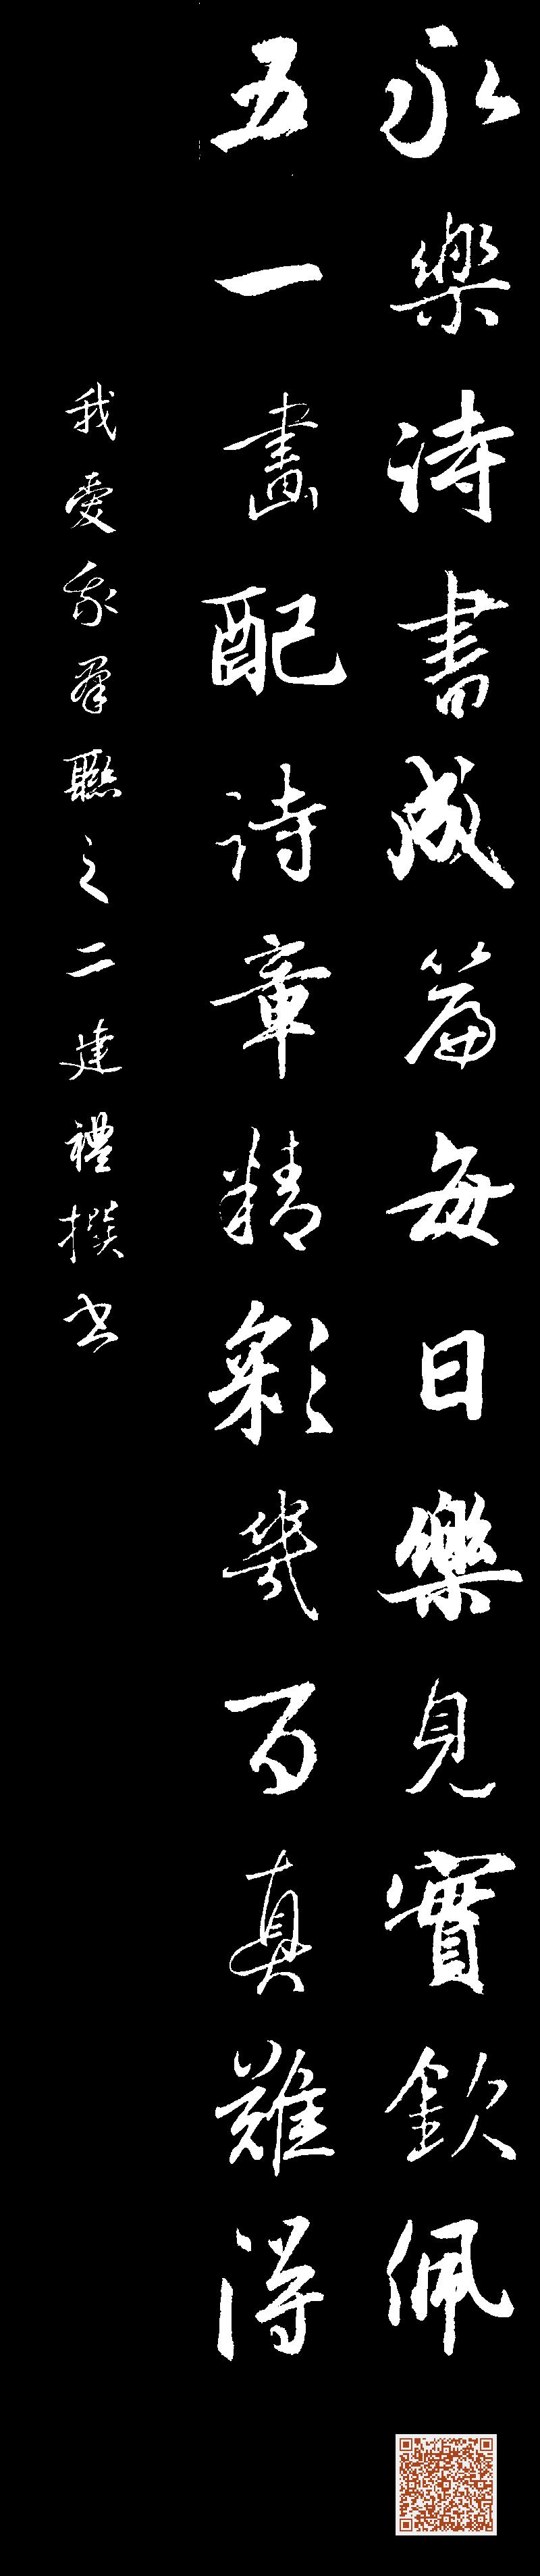 永樂詩書成篇每日樂見實欽佩
五一畫配詩章精彩幾百真難得
我愛我群聯之二建禮撰书